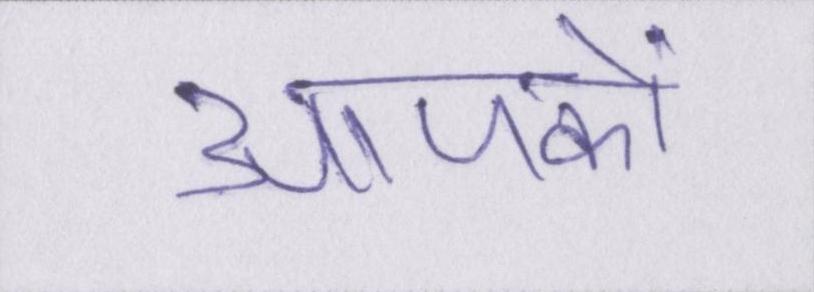 आपकों